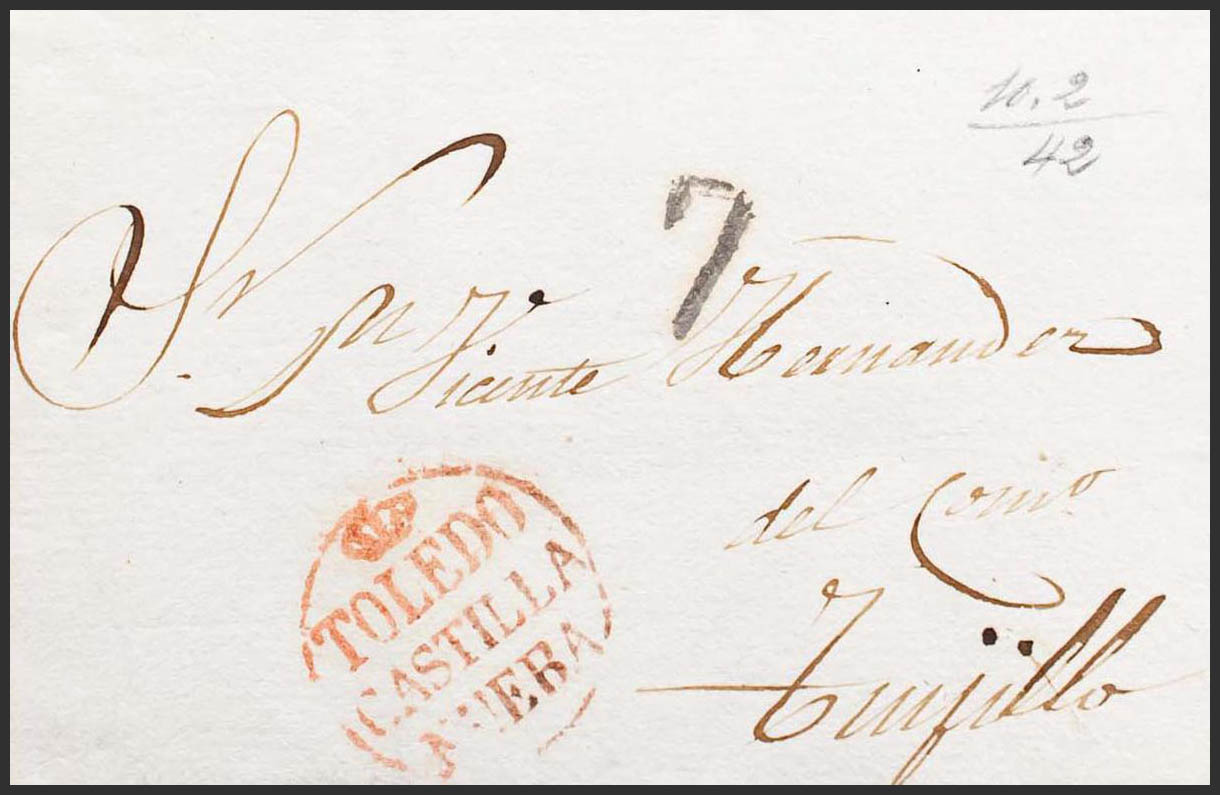 10.2
42
7
Sr. Dn Vicente Hernandez
del Como
Trujillo
TOLEDO
CASTILLA
NUEBA